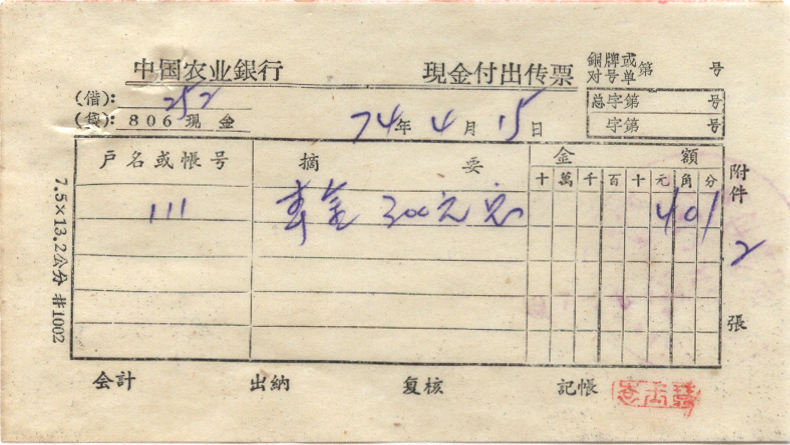 中国农业銀行 現金付出传票
銅牌或
对号单 第 号
(借): 252
总字第 号
(贷): 806現金
74年4月15日
字第 号
戶名或帳号 摘要 金額
十萬千百十元角分
附件 2 張
111 本金300元息 401
7.5×13.2公分 #1002
会計 出納 复核 記帳